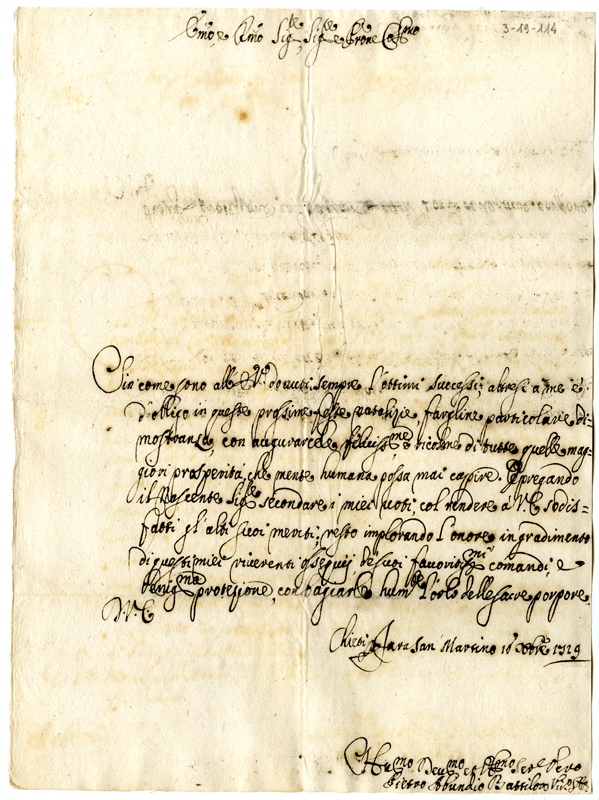 3-19-114
Emo, e Rmo Sigre, Sigre e Prone Colmo
Sicome sono all' E.V. dovuti sempre l'ottimi successi; altresi a me è
d'obligo in queste prossime feste natalizie, fargline particolare di=
mostranza, con augurarcele felicissme e ricolme di tutte quelle mag=
giori prosperità, che mente humana possa mai capire. E pregando
il Nascente Sigre secondare i miei voti, col rendere a V.E. sodis=
fatti gl'alti suoi meriti; resto implorando l'onore in gradimento
di questi miei riverenti ossequij de suoi favoritissmi comandi, e
benigma protezione, con bagiarle humte l'orlo delle sacre porpore.
D. V. E.
Chieti Fara San Martino 10 Xbre 1729
Humo Devmo et Obmo Serre Vero
Pietro Abundio Battiloro